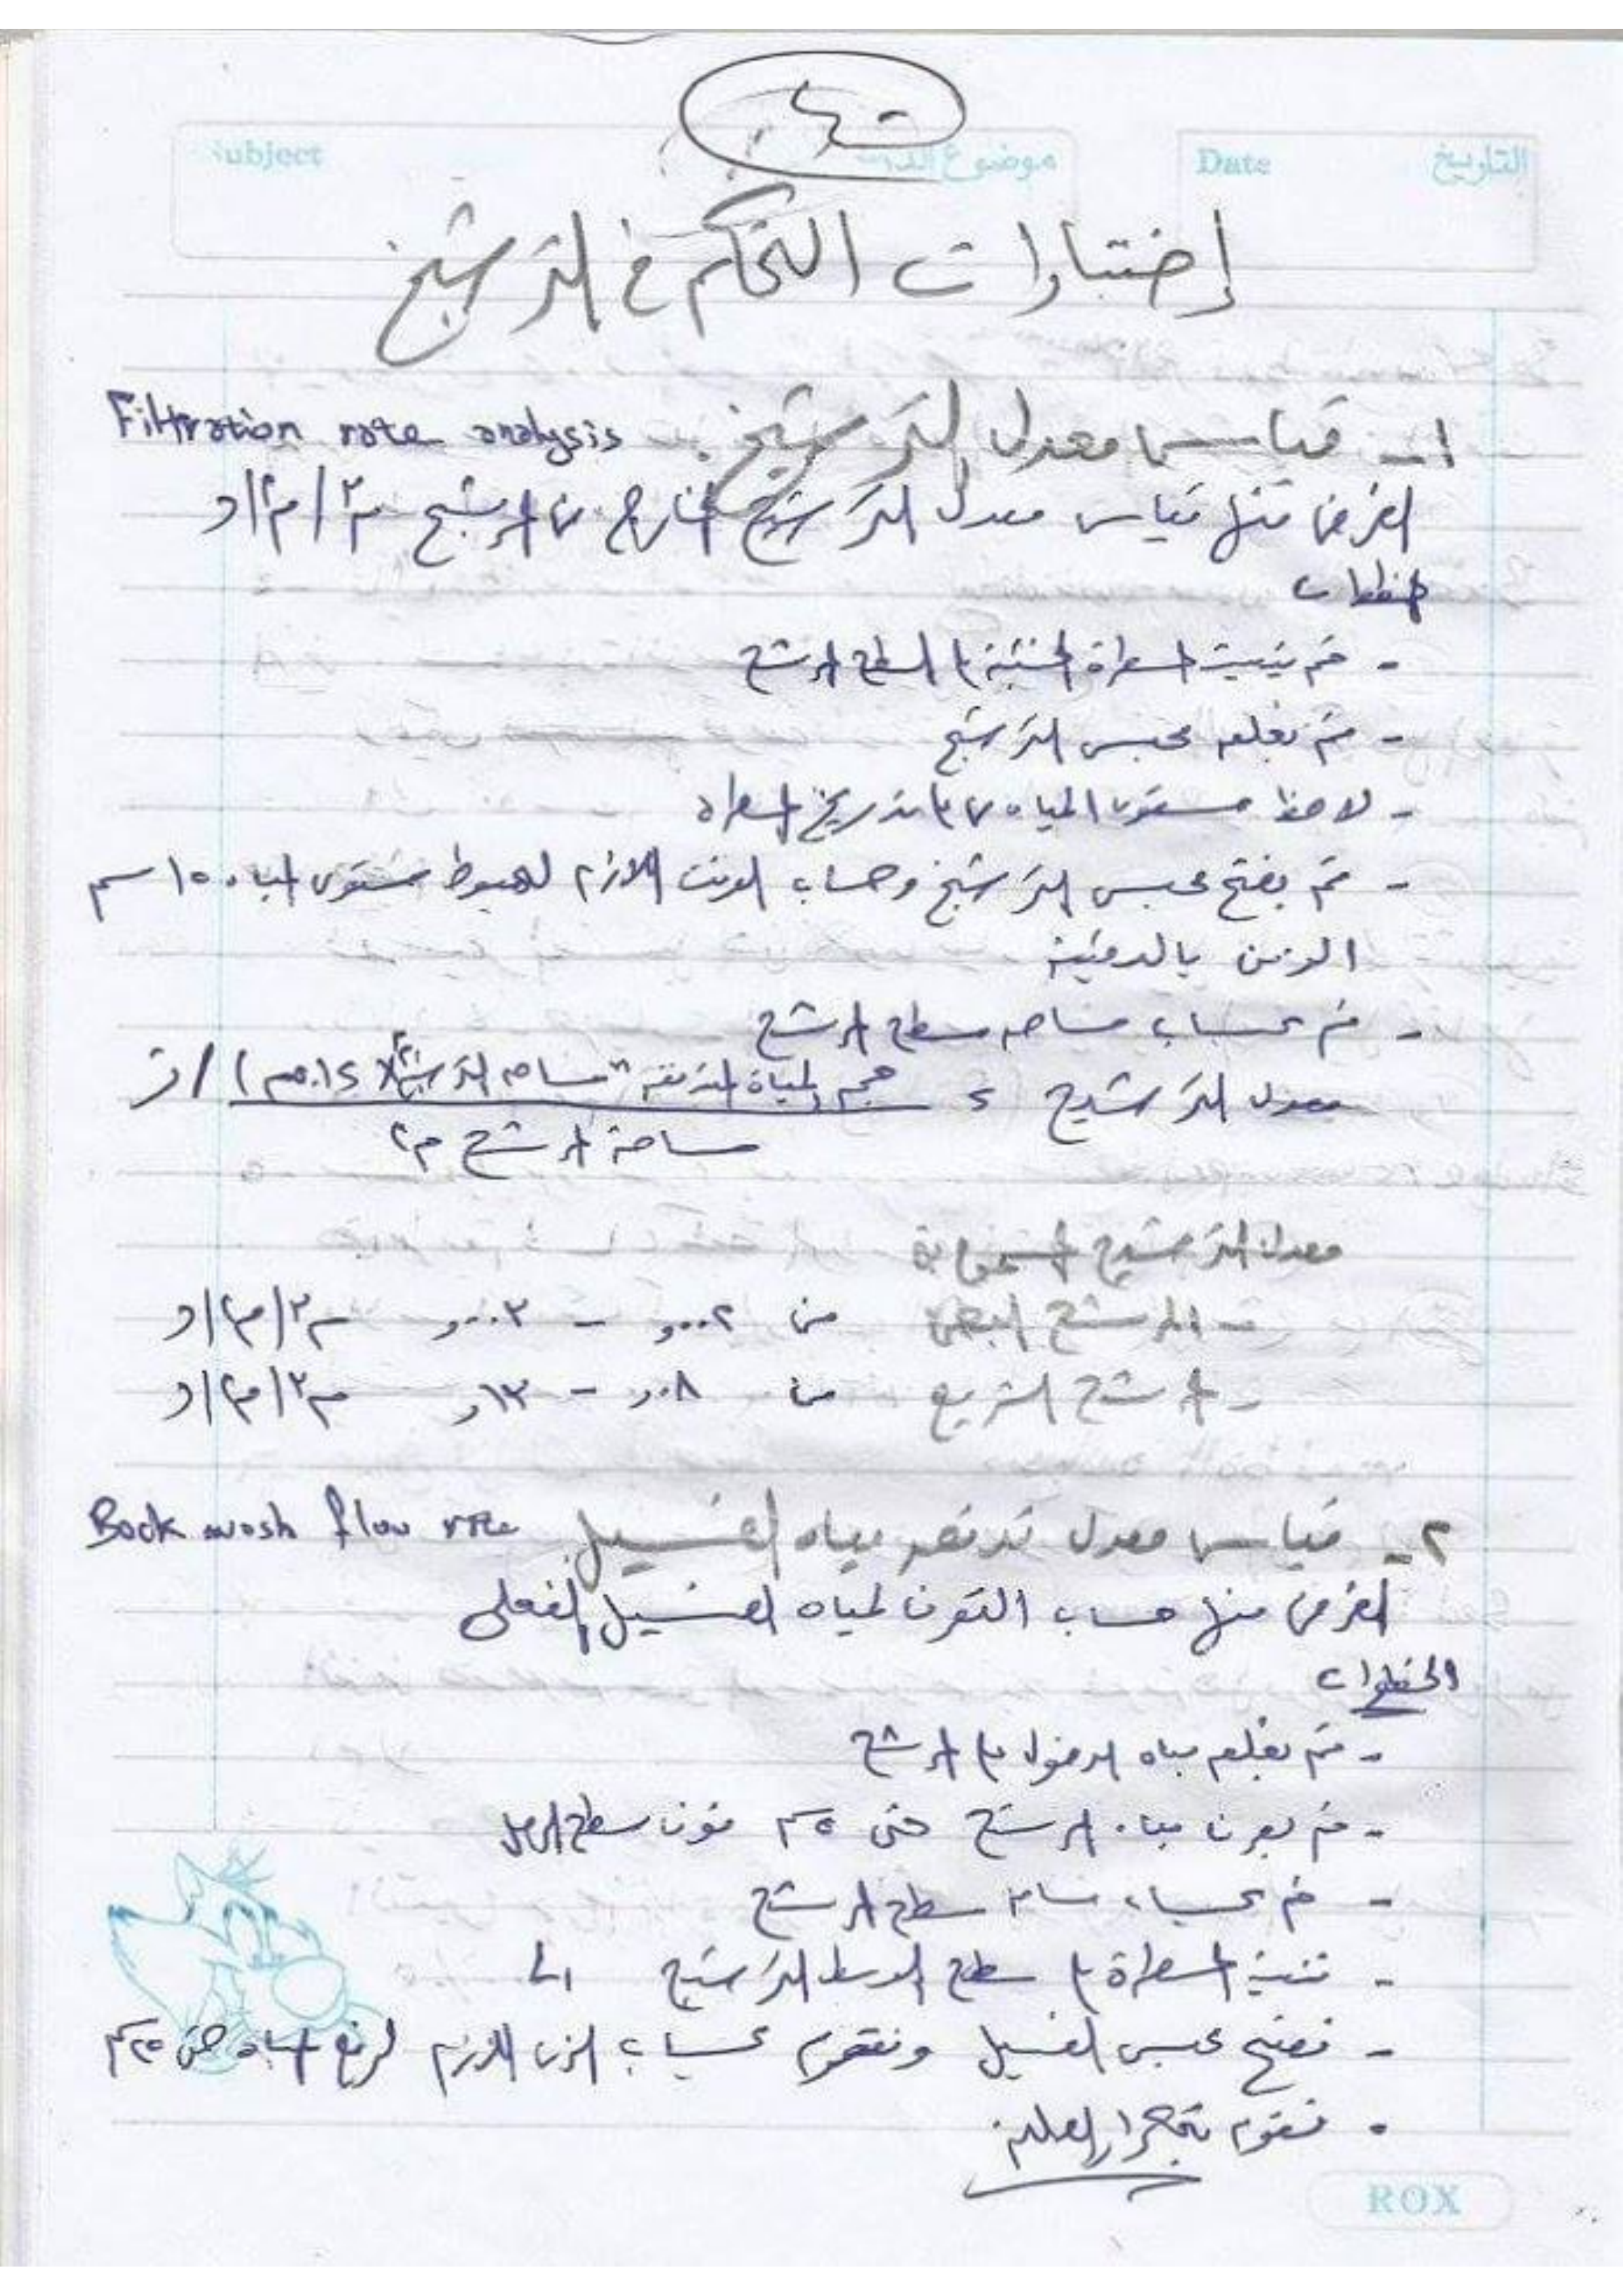 Subject موضوع الدرس Date التاريخ
إختبارات التحكم في الترشيح
١- قياس معدل الترشيح Filtration rate analysis
الغرض منها قياس معدل الترشيح الخارج من المرشح م٣/م٢/د
خطوات
- قم بتثبيت المسطرة الخشبية على سطح المرشح
- قم بغلق محبس الترشيح
- لاحظ مستوى المياه على تدريج المسطرة
- قم بفتح محبس الترشيح وحساب الوقت اللازم لهبوط مستوى المياه ١٥ سم
الزمن بالدقيقة
- قم بحساب مساحه سطح المرشح
معدل الترشيح = حجم المياة المتدفقه "مساحه الترشيح م٢ × ١٥,.م) / ز
مساحة المرشح م٢
معدل الترشيح المسموح به
- المرشح البطئ من ٠٠٠٢, - ٠٠٠٣, م٣/م٢/د
- المرشح السريع من ٠٨, - ١٣, م٣/م٢/د
٢- قياس معدل تدفق مياه الغسيل Back wash flow rate
الغرض منها حساب التصرف لمياه الغسيل الفعلى
الخطوات
- قم بغلق مياه الدخول على المرشح
- قم بصرف مياه المرشح حتى ٥ سم فوق سطح الرمل
- قم بحساب مساحه سطح المرشح
- تثبيت المسطرة على سطح الوسط الترشيحى
- نفتح محبس الغسيل ونقوم بحساب الزمن اللازم لرفع المياه حتى ٢٥ سم
- نقوم بتكرار العمليه
ROX